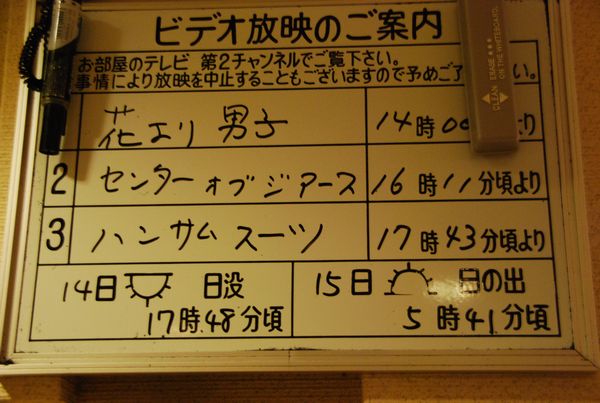 ビデオ放映のご案内
お部屋のテレビ 第2チャンネルでご覧下さい。
事情により放映を中止することもございますので予めご了 い。
花より男子 14時00 より
2 センターオブジアース 16時11分頃より
3 ハンサムスーツ 17時43分頃より
14日 日没 15日 日の出
17時48分頃 5時41分頃
CLEAN ERASE ON THE WHITEBOARD.